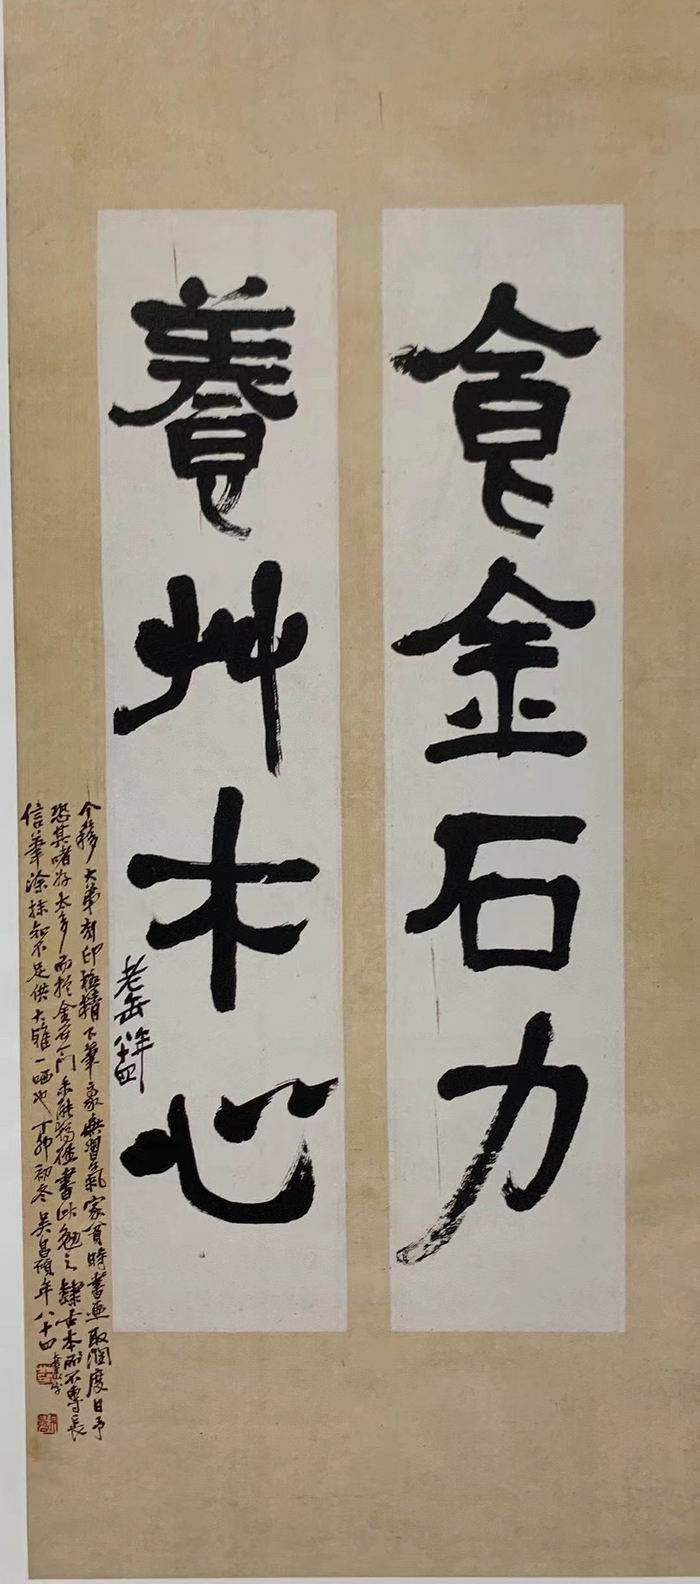 食金石力
養艸木心
老缶年八十四
个簃大弟刻印極精下筆豪無習氣家貧時書画取潤度日予
恐其嗜好太多而於金石一門未能獨優書此勉之隸古本所不專長
信筆涂抹知不足供大雅一哂也丁卯初冬吳昌碩年八十四